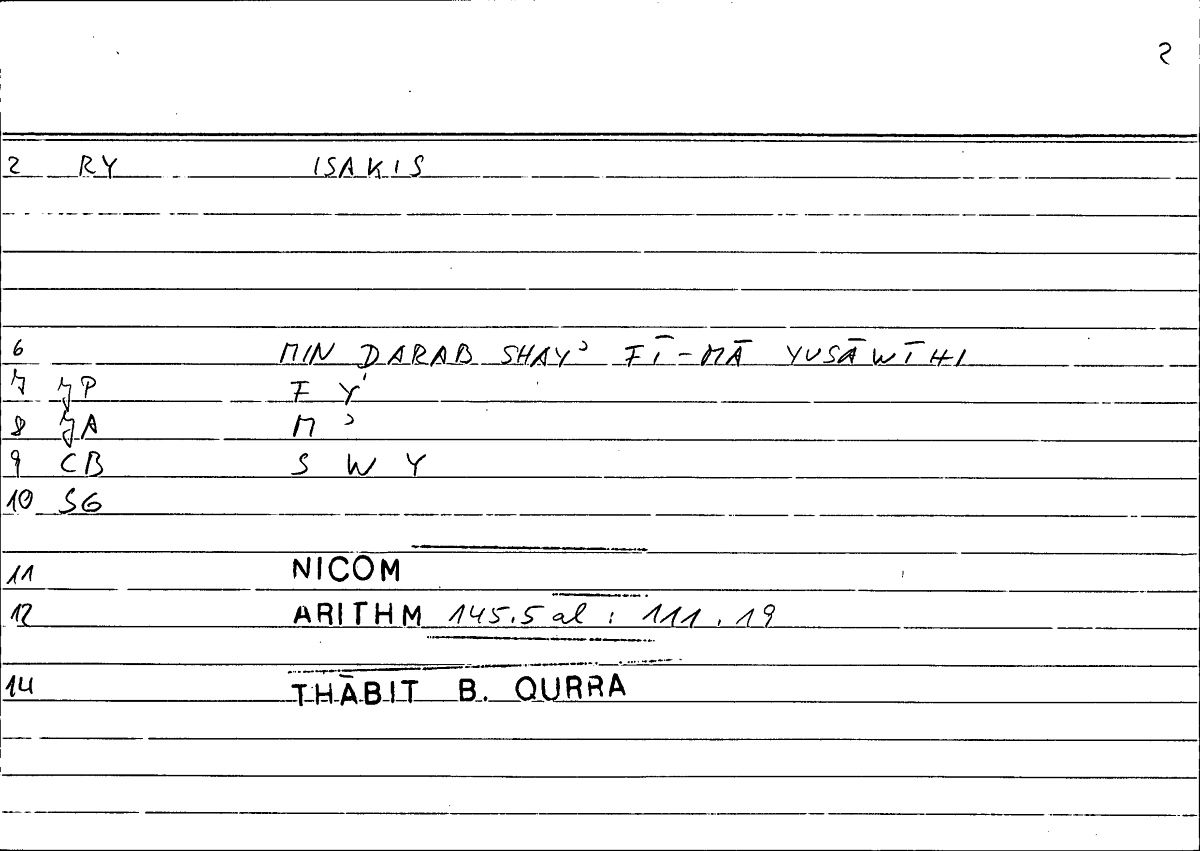 2
2 RY ISAKIS
6 MIN DARAB SHAYʾ FĪ-MĀ YUSĀWĪHI
7 JP F Y
8 JA M ʾ
9 CB S W Y
10 SG
11 NICOM
12 ARITHM 145.5 al : 111.19
14 THĀBIT B. QURRA